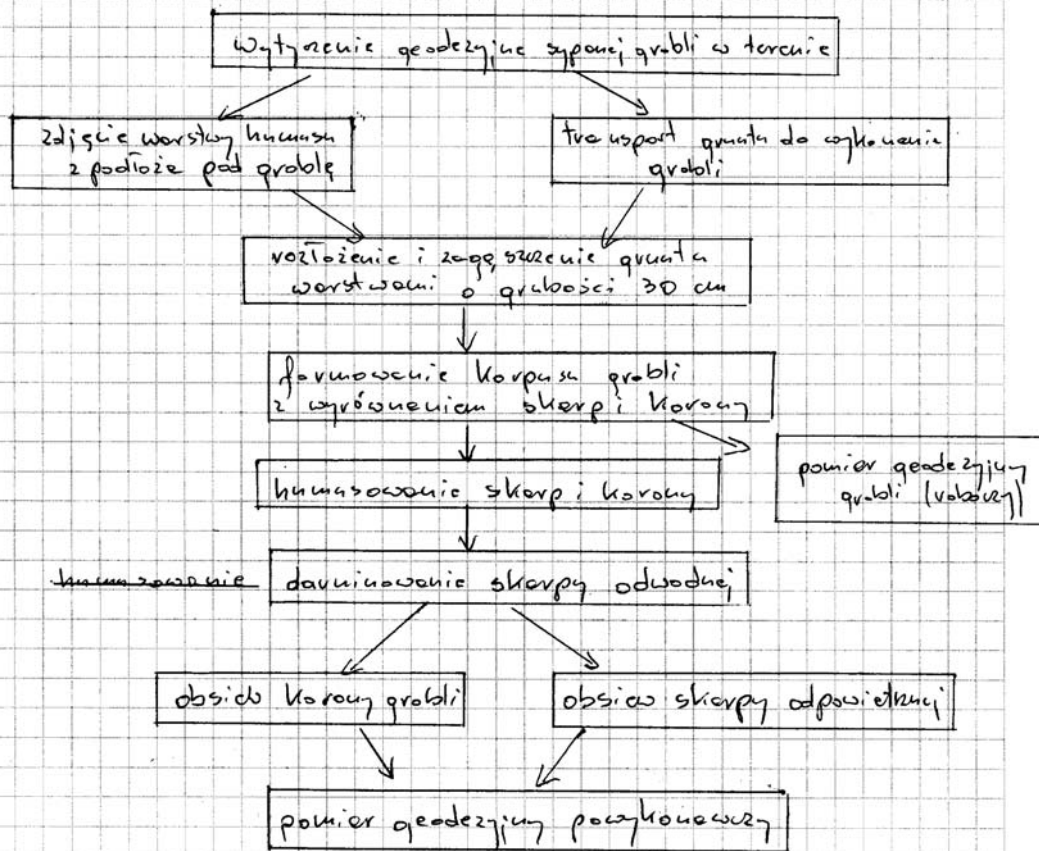 wytyczenie geodezyjne sypanej grobli w terenie
zdjęcie warstwy humusu
z podłoża pod groblę
transport gruntu do wykonania
grobli
rozłożenie i zagęszczenie gruntu
warstwami o grubości 30 cm
formowanie korpusu grobli
z wyrównaniem skarp i korony
pomiar geodezyjny
grobli (roboczy)
humusowanie skarp i korony
humusowanie darniowanie skarpy odwodnej
obsiew korony grobli
obsiew skarpy odpowietrznej
pomiar geodezyjny powykonawczy